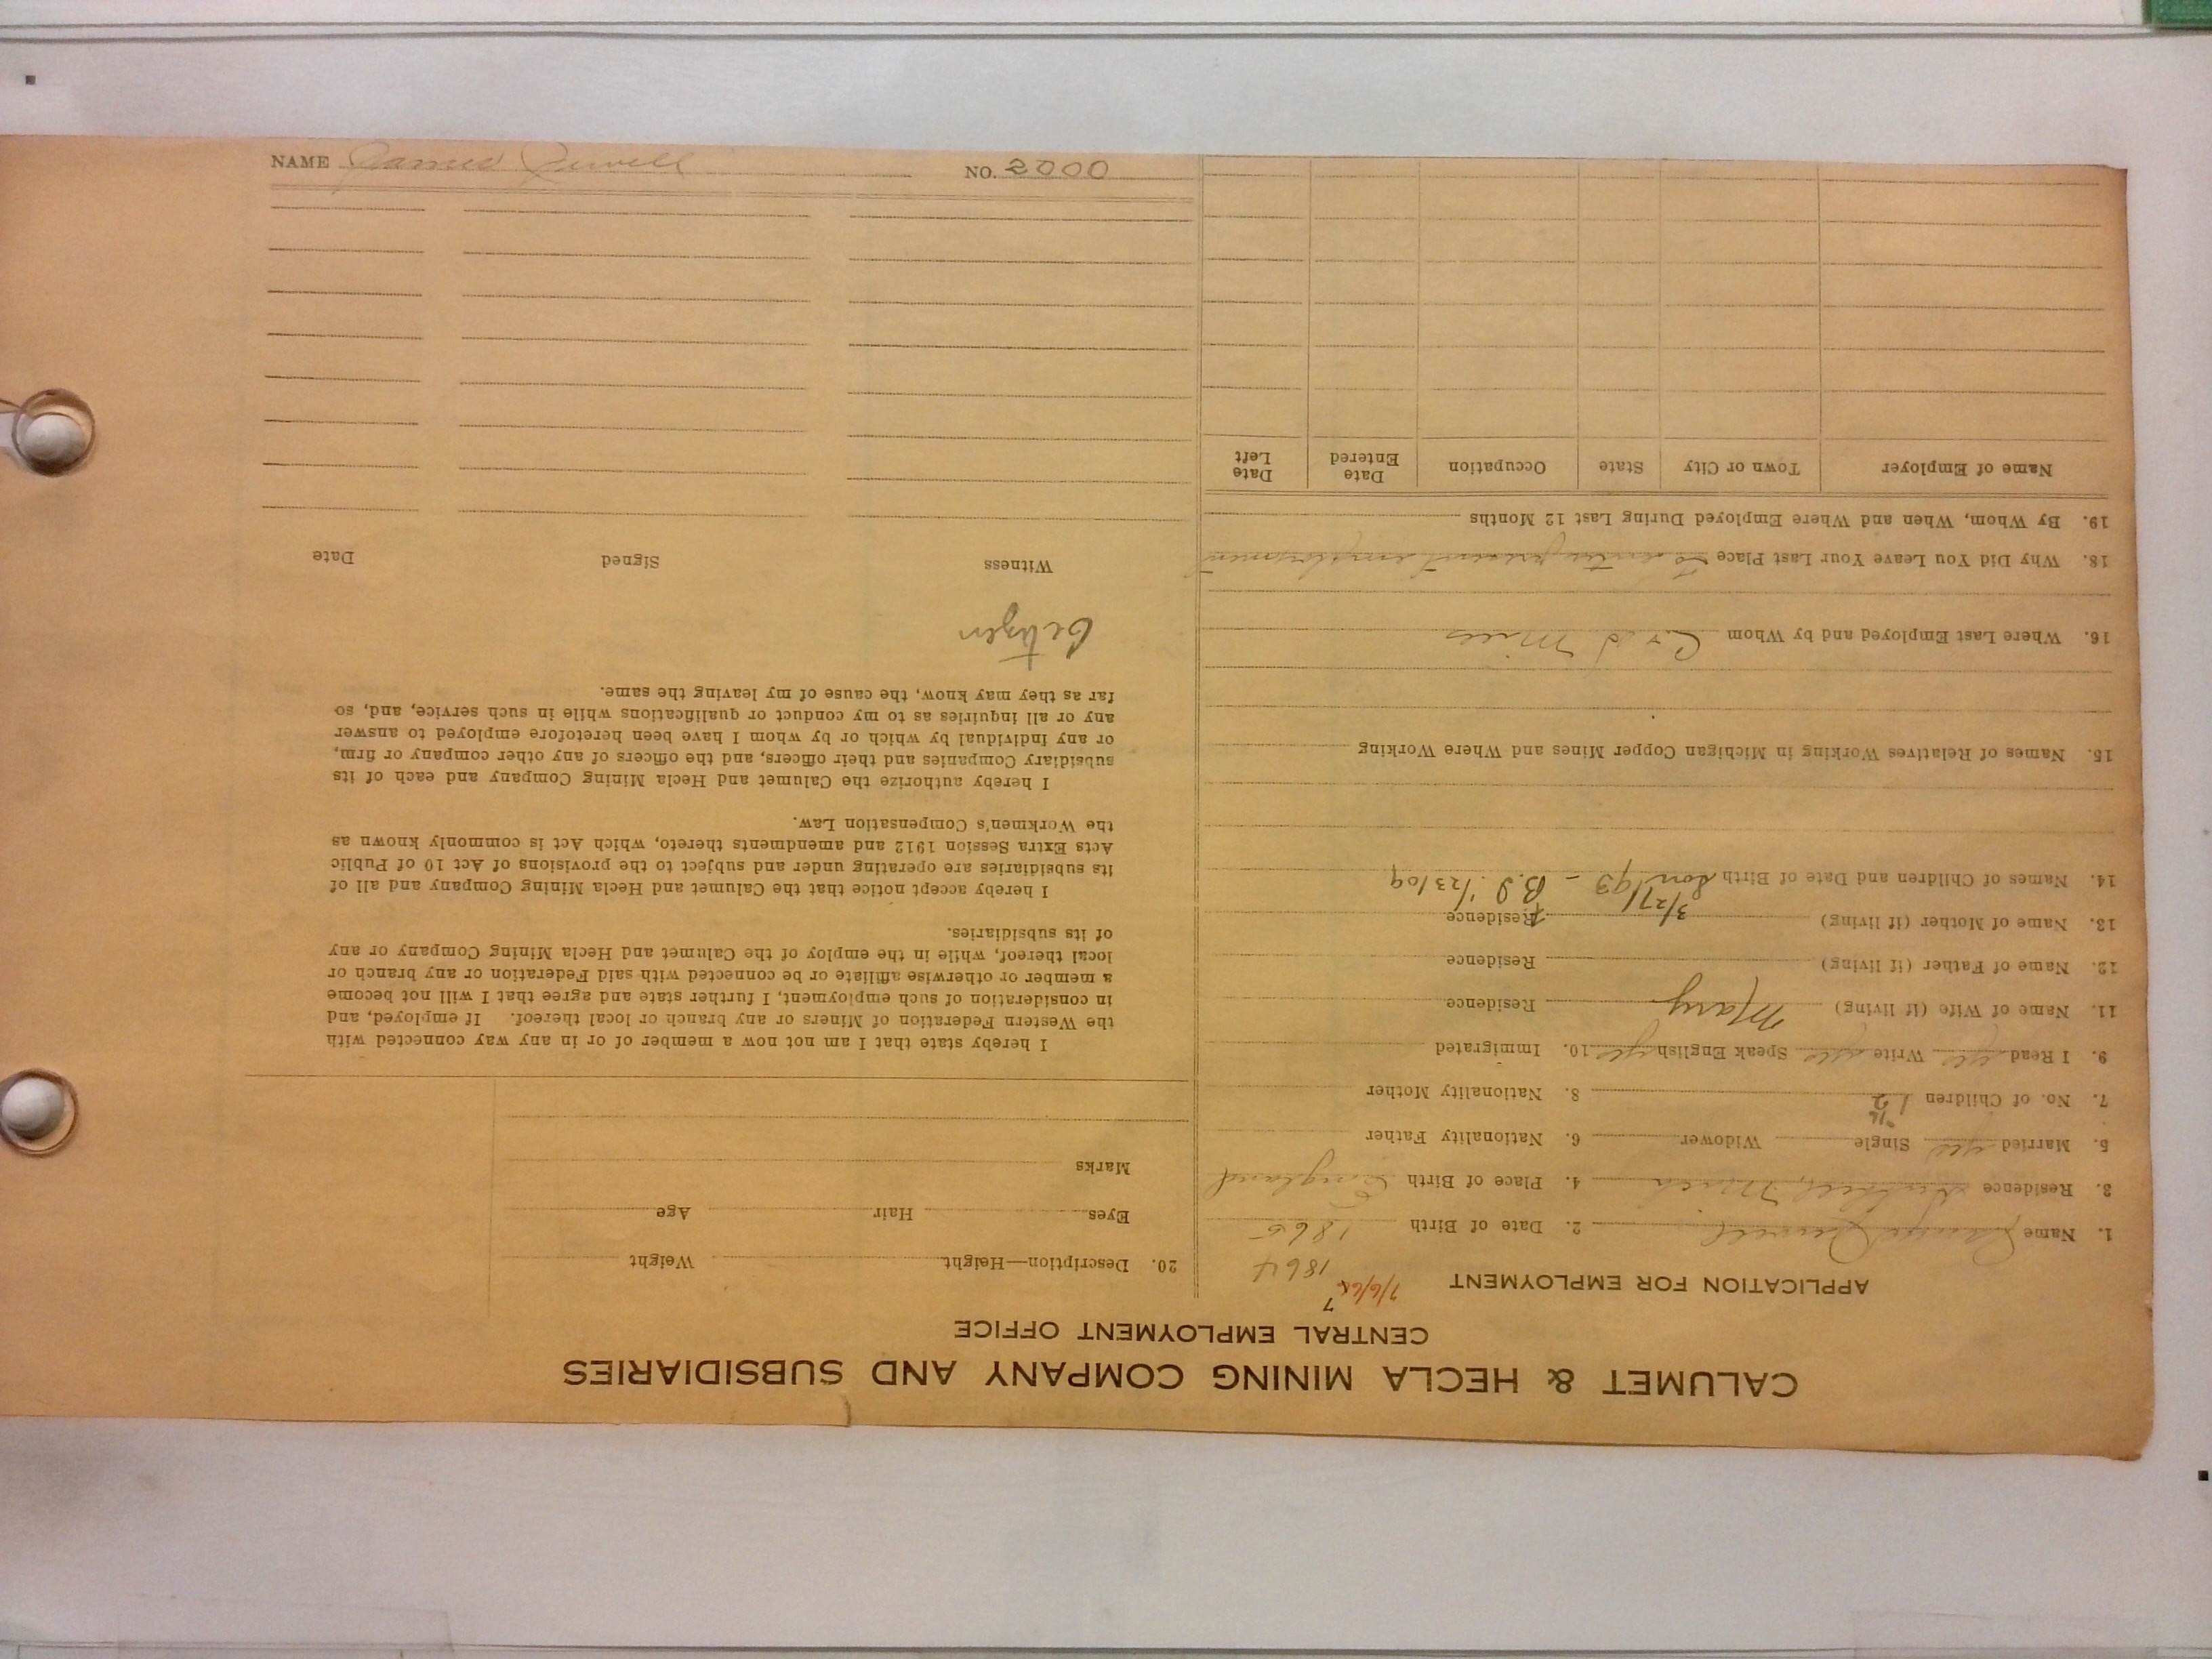 CALUMET & HECLA MINING COMPANY AND SUBSIDIARIES
CENTRAL EMPLOYMENT OFFICE
APPLICATION FOR EMPLOYMENT
7/6/65
7
1864
1. Name James Jewell 2. Date of Birth 1865
3. Residence Hubbell, Mich 4. Place of Birth England
5. Married yes Single Widower 6. Nationality Father
7. No. of Children 1 2 8. Nationality Mother
9. I Read yes Write yes Speak English yes 10. Immigrated
11. Name of Wife (if living) Mary Residence
12. Name of Father (if living) Residence
13. Name of Mother (if living) Residence
3/27/93
14. Names of Children and Date of Birth Son - B.S. 1/23/09
15. Names of Relatives Working in Michigan Copper Mines and Where Working
16. Where Last Employed and by Whom Mills
18. Why Did You Leave Your Last Place To enter present employment
19. By Whom, When and Where Employed During Last 12 Months
Name of Employer Town or City State Occupation Date Entered Date Left
20. Description—Height Weight
Eyes Hair Age
Marks
I hereby state that I am not now a member of or in any way connected with
the Western Federation of Miners or any branch or local thereof. If employed, and
in consideration of such employment, I further state and agree that I will not become
a member or otherwise affiliate or be connected with said Federation or any branch or
local thereof, while in the employ of the Calumet and Hecla Mining Company or any
of its subsidiaries.
I hereby accept notice that the Calumet and Hecla Mining Company and all of
its subsidiaries are operating under and subject to the provisions of Act 10 of Public
Acts Extra Session 1912 and amendments thereto, which Act is commonly known as
the Workmen's Compensation Law.
I hereby authorize the Calumet and Hecla Mining Company and each of its
subsidiary Companies and their officers, and the officers of any other company or firm,
or any individual by which or by whom I have been heretofore employed to answer
any or all inquiries as to my conduct or qualifications while in such service, and, so
far as they may know, the cause of my leaving the same.
Citizen
Witness Signed Date
NAME James Jewell NO. 2000